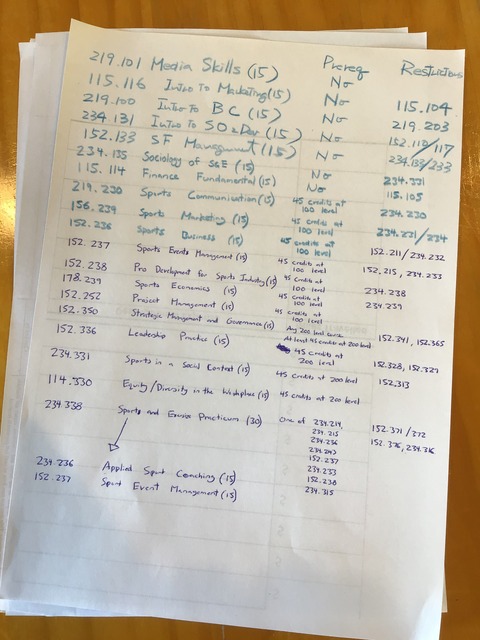 219.101 Media Skills (15) Prereq Restrictions
115.116 Intro To Marketing (15) No
219.100 Intro To BC (15) No 115.104
234.131 Intro To SO & Dev (15) No 219.203
152.133 SF Management (15) No 152.112/117
234.135 Sociology of S&E (15) No 234.133/233
115.114 Finance Fundamental (15) No 234.331
219.230 Sports Communication (15) 45 credits at 100 level 115.105
156.239 Sports Marketing (15) 45 credits at 100 level 234.230
152.236 Sports Business (15) 45 credits at 100 level 234.231/234
152.237 Sports Events Management (15) 45 credits at 100 level 152.211/234.232
152.238 Pro Development for Sports Industry (15) 45 credits at 100 level 152,215, 234.233
178.239 Sports Economics (15) 45 credits at 100 level 234.238
152.252 Project Management (15) 45 credits at 100 level 234.239
152.350 Strategic Management and Governance (15) Any 200 level course At least 45 credits at 200 level 152.341, 152.365
152.336 Leadership Practice (15) 45 credits at 200 level
234.331 Sports in a Social Context (15) 45 credits at 200 level 152.328, 152.329
114.330 Equity/Diversity in the Workplace (15) 45 credits at 200 level 152.313
234.338 Sports and Exercise Practicum (30) One of 234.214, 152.371/372
234.215 152.376, 234.316
234.236
234.242
152.237
234.236 Applied Sport Coaching (15) 234.233
152.237 Sport Event Management (15) 152.238
234.315